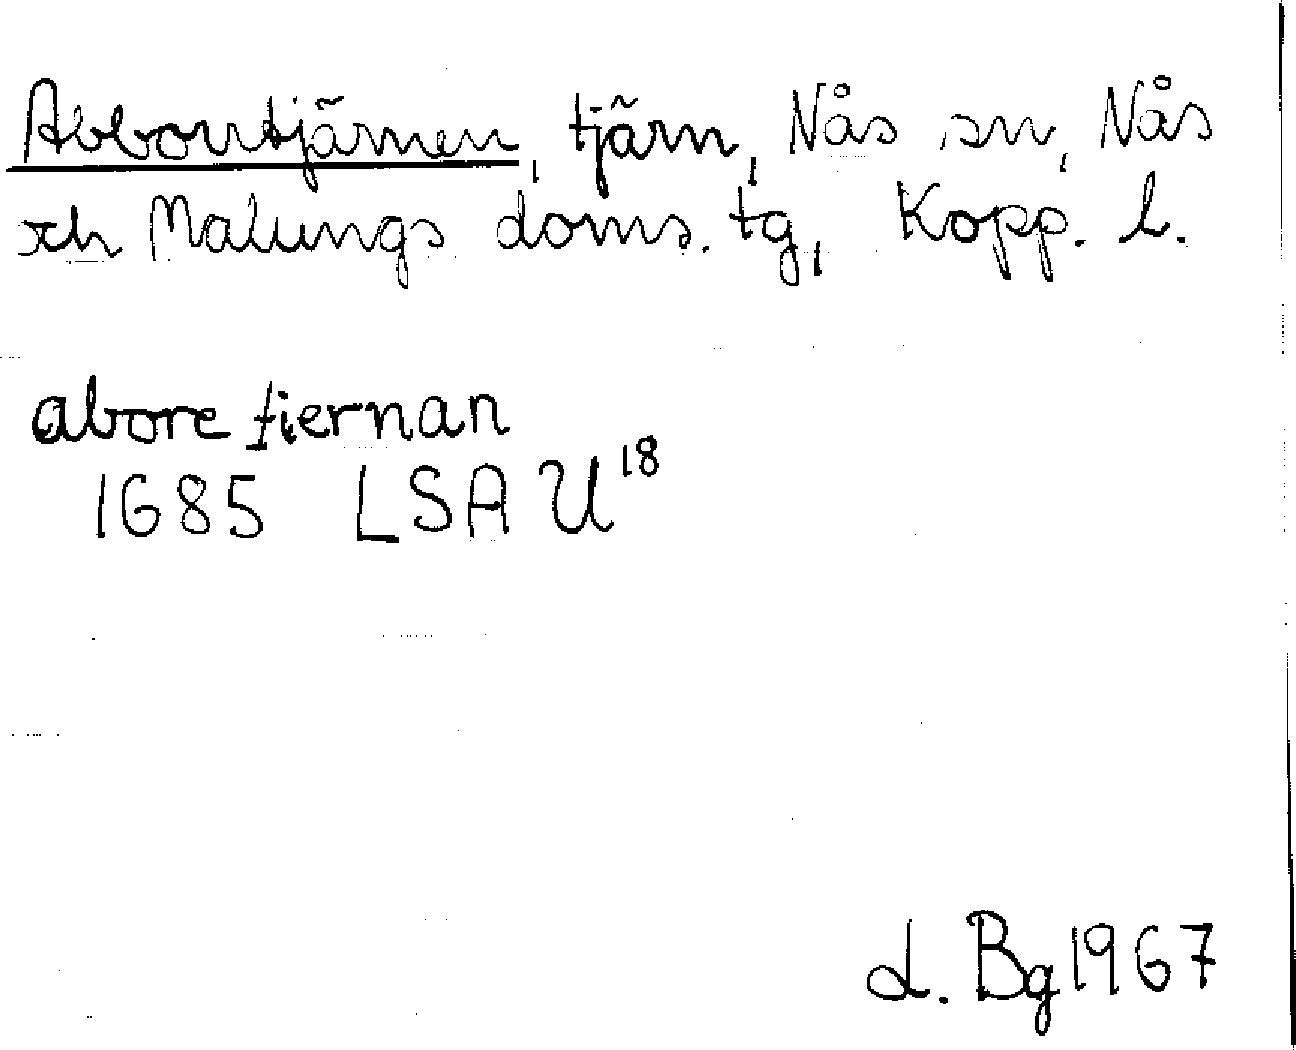 Abborrtjärnen, tjärn, Nås sn, Nås
och Malungs doms. tg, Kopp. l.
abore tiernan
1685 LSA U18
L. Bg 1967